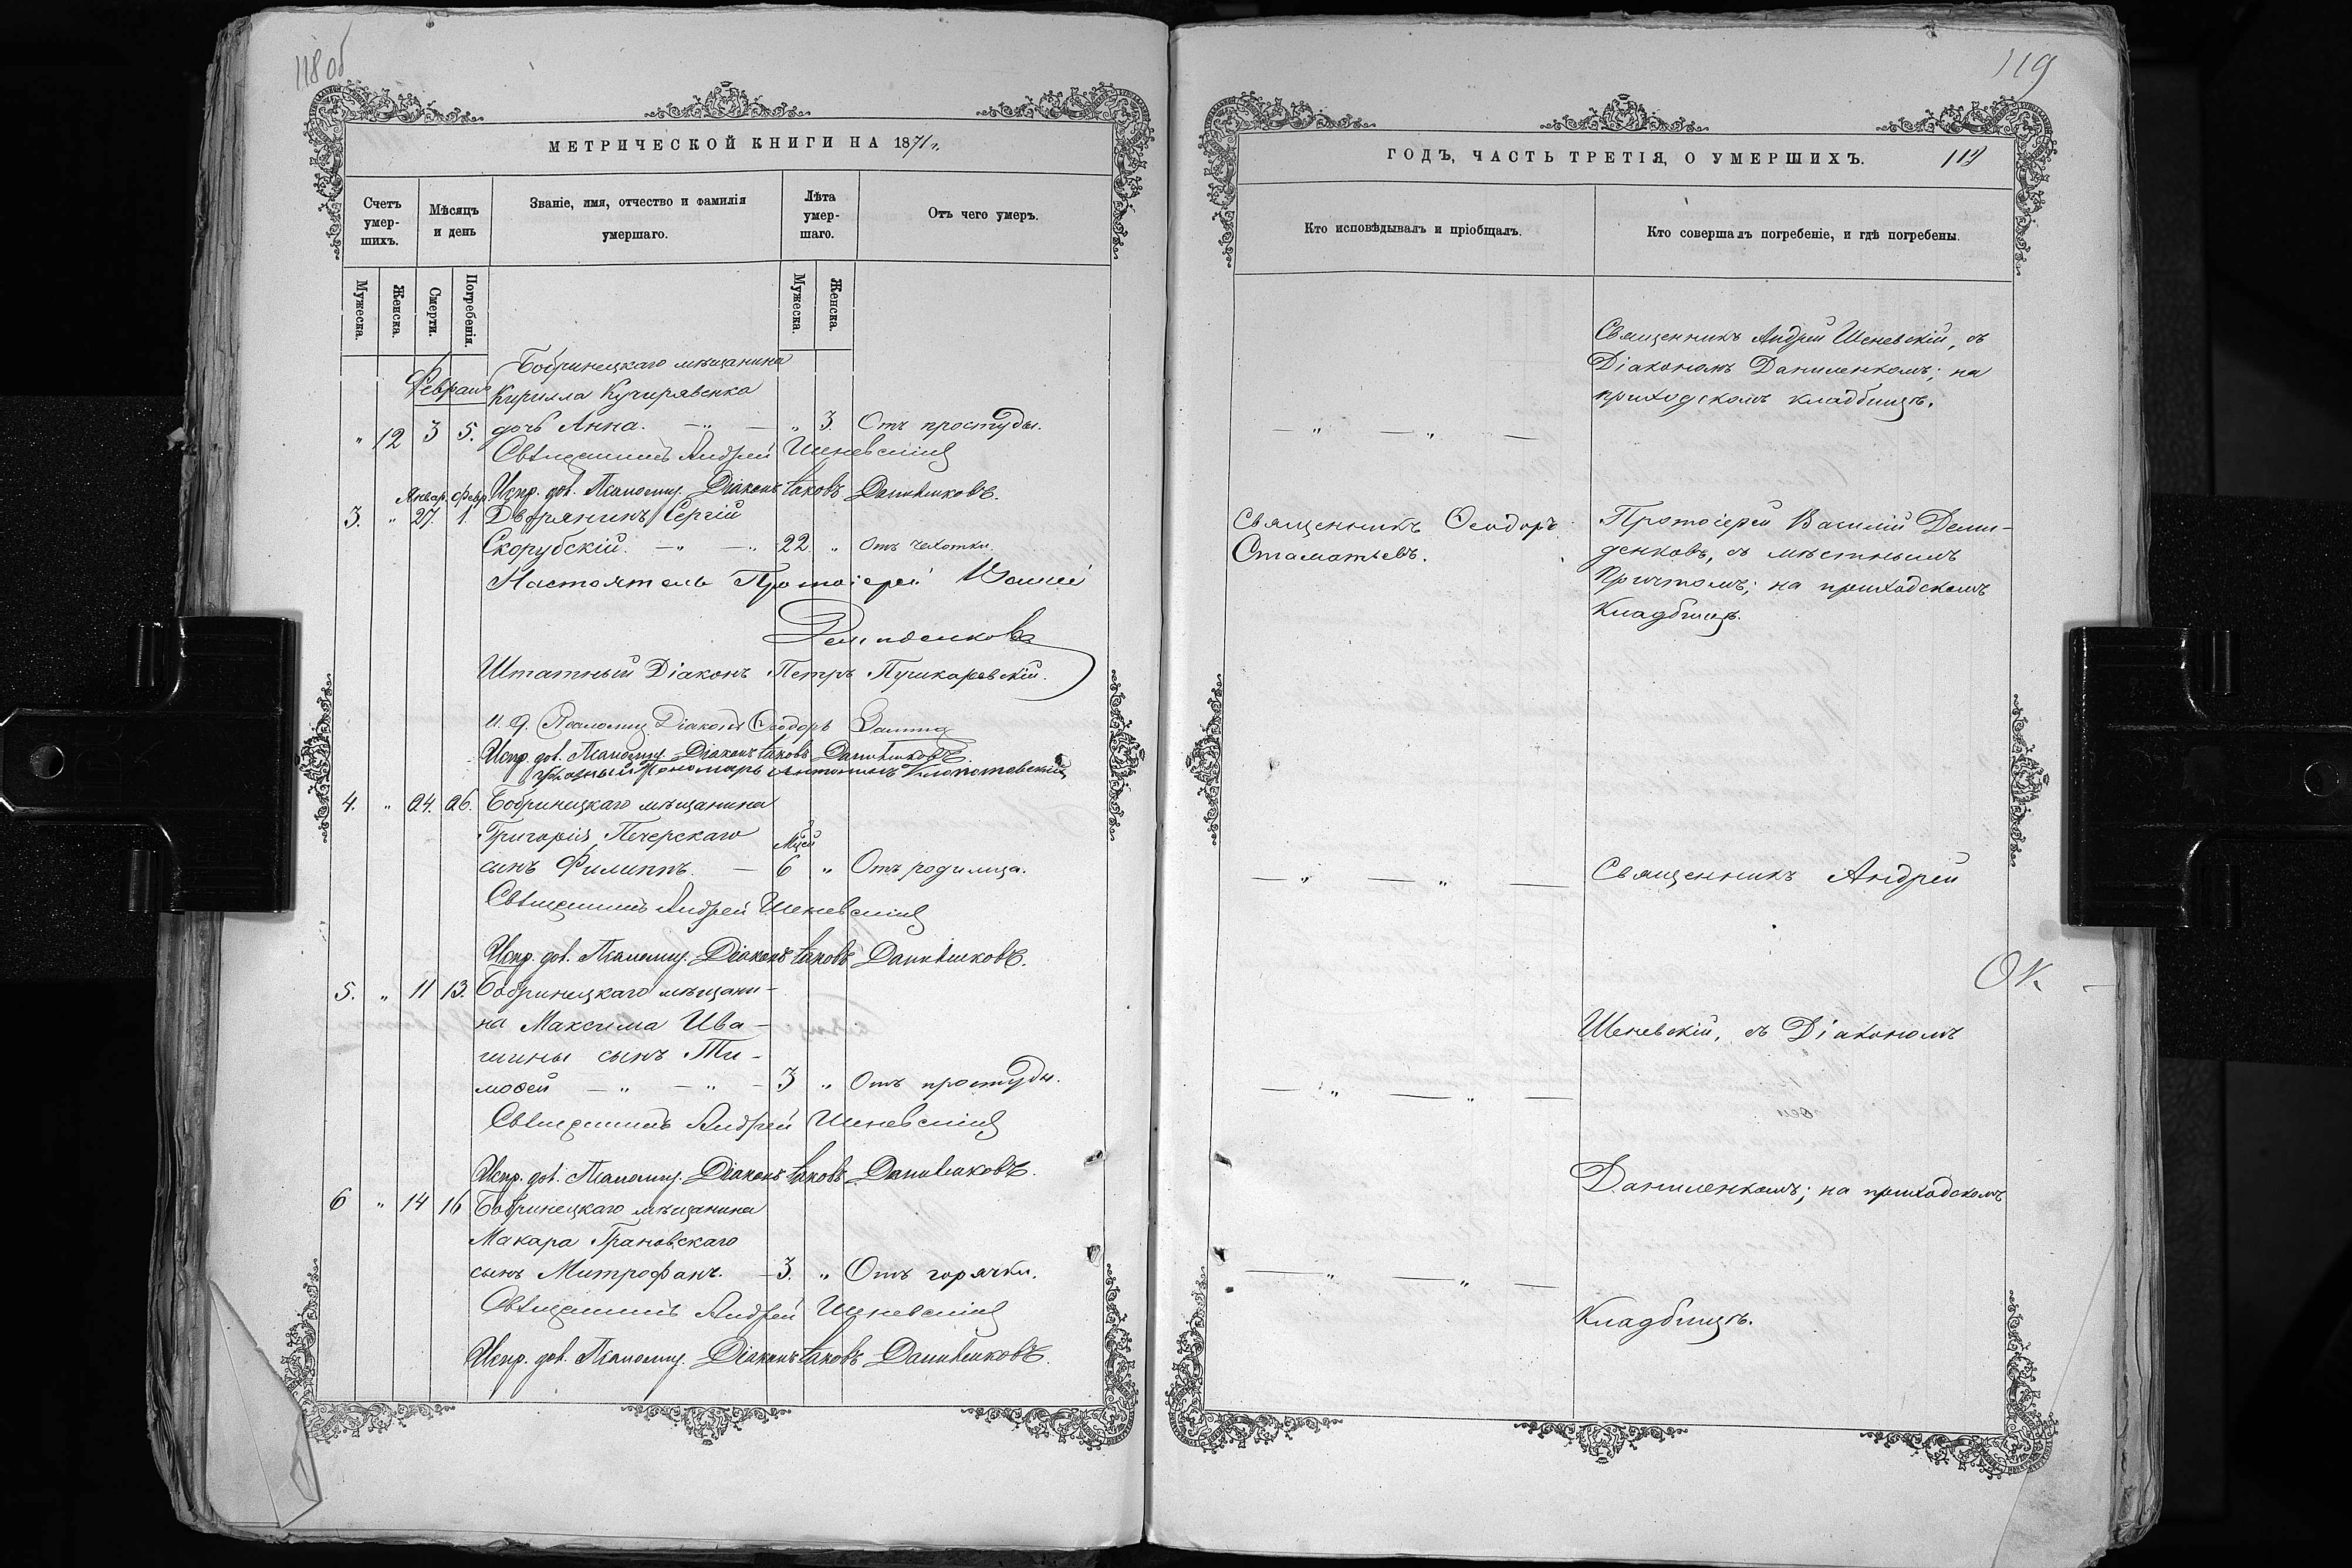 118 об
МЕТРИЧЕСКОЙ КНИГИ НА 1871 г.
Счетъ умер-шихъ.
Мѣсяцъ и день
Званіе, имя, отчество и фамилія умершаго.
Лѣта умер-шаго.
Отъ чего умеръ.
Мужеска.
Женска.
Смерти.
Погребенія.
Мужеска.
Женска.
Бобринецкаго мѣщанина
Февраля
Кирилла Кучерявенка
" 12 3 5. дочь Анна. — " — " 3. Отъ простуды.
Священникъ Андрей Шеневскій
Испр. дол. Псаломщ. Діаконъ Іаковъ Даниленковъ.
Январ. Февр.
3. " 27. 1. Дворянинъ Сергій
Скорубскій. — " — " 22 " Отъ чехотки.
Настоятель Протоіерей Василій
Демиденковъ
Штатный Діаконъ Петръ Пушкаревскій.
И. д. Псаломщ. Діаконъ Ѳеодоръ
Испр. дол. Псаломщ. Діаконъ Іаковъ Даниленковъ.
Пономарь Антонинъ Клопотовскій
4. " 24. 26. Бобринецкаго мѣщанина
Григорія Печерскаго
Мцей
сынъ Филиппъ. — 6 " Отъ родимца.
Священникъ Андрей Шеневскій
Испр. дол. Псаломщ. Діаконъ Іаковъ Даниленковъ.
5. " 11 13. Бобринецкаго мѣщани-
на Максима Ива-
шины сынъ Ти-
моѳей — " — " — 3 " Отъ простуды.
Священникъ Андрей Шеневскій
Испр. дол. Псаломщ. Діаконъ Іаковъ Даниленковъ.
6 " 14 16 Бобринецкаго мѣщанина
Макара Грановскаго
сынъ Митрофанъ. — 3. " Отъ горячки.
Священникъ Андрей Шеневскій
Испр. дол. Псаломщ. Діаконъ Іаковъ Даниленковъ.
119
ГОДЪ, ЧАСТЬ ТРЕТІЯ, О УМЕРШИХЪ.
119
Кто исповѣдывалъ и пріобщалъ.
Кто совершалъ погребеніе, и гдѣ погребены.
Священникъ Андрей Шеневскій, съ
Діакономъ Даниленкомъ; на
приходскомъ кладбищѣ.
— " — " —
Священникъ Ѳеодоръ
Стаматьевъ.
Протоіерей Василій Деми-
денковъ, съ мѣстнымъ
Причтомъ; на приходскомъ
Кладбищѣ.
— " — " —
Священникъ Андрей
Шеневскій, съ Діакономъ
— " — " —
Даниленкомъ; на приходскомъ
— " — " —
Кладбищѣ.